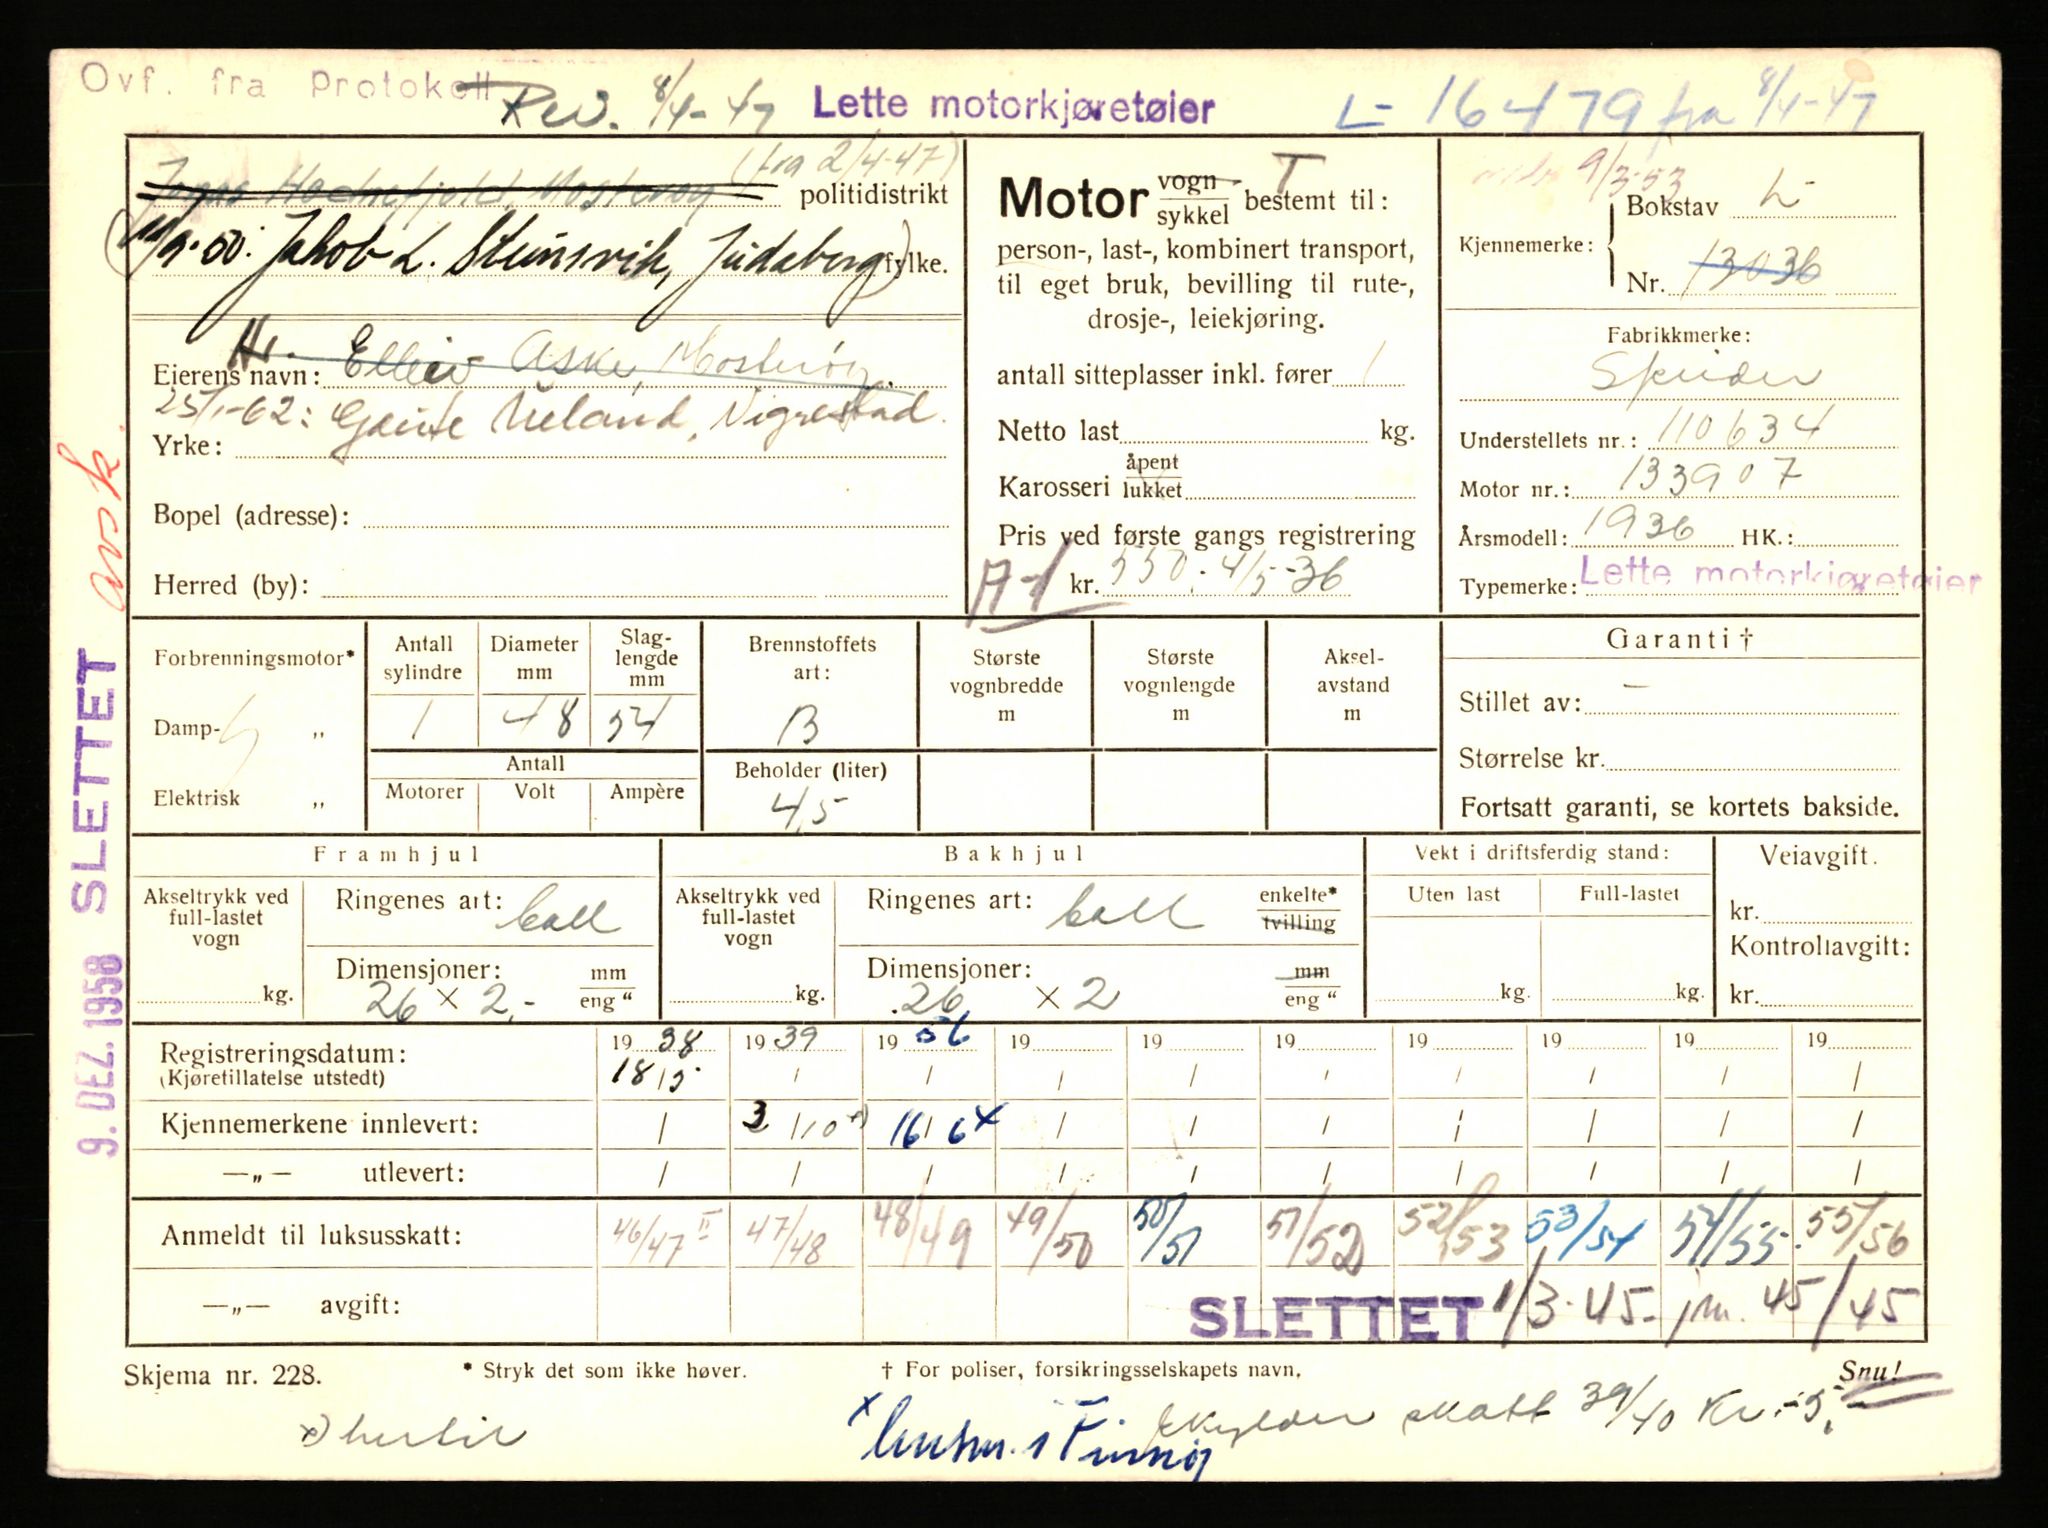 Ovf. fra Protokoll
Rev. 8/4-47
Lette motorkjøretøier
L- 16479 fra 8/4-47
(fra 2/4-47)
politidistrikt
11/9-50: Jakob L. Steinsvik, Judaberg)
fylke.
Eierens navn: Hr. Elliv Aske, Mosterøy.
25/1-62: Gaute Ueland, Nigrestad.
Yrke:
Bopel (adresse):
Herred (by):
Motor vogn sykkel bestemt til:
T
person-, last-, kombinert transport,
til eget bruk, bevilling til rute-,
drosje-, leiekjøring.
antall sitteplasser inkl. fører 1
Netto last kg.
Karosseri åpent lukket
Pris ved første gangs registrering
A-1 kr. 550.- 4/5-36
9/3-53
Kjennemerke: Bokstav L-
Nr. 13036
Fabrikkmerke:
Spider
Understellets nr.: 110634
Motor nr.: 133907
Årsmodell: 1936 HK.:
Typemerke: Lette motorkjøretøier
avsk.
SLETTET
9. DEZ. 1958
Forbrenningsmotor*
Damp- „
Elektrisk „
Antall sylindre
Diameter mm
Slaglengde mm
1 48 54
Antall
Motorer Volt Ampère
Brennstoffets art:
B
Beholder (liter)
4,5
Største vognbredde m
Største vognlengde m
Akselavstand m
Garanti †
Stillet av: —
Størrelse kr.
Fortsatt garanti, se kortets bakside.
Framhjul
Akseltrykk ved full-lastet vogn
kg.
Ringenes art: ball
Dimensjoner: mm eng "
26 × 2.-
Bakhjul
Akseltrykk ved full-lastet vogn
kg.
Ringenes art: ball enkelte* tvilling
Dimensjoner: mm eng "
26 × 2
Vekt i driftsferdig stand:
Uten last Full-lastet
kg. kg.
Veiavgift.
kr.
Kontrollavgift:
kr.
Registreringsdatum: 1938 1939 1956 19 19 19 19 19 19 19
(Kjøretillatelse utstedt) 18/5 / / / / / / / / /
Kjennemerkene innlevert: / 3/10 x) 16/6 x / / / / / / /
—„— utlevert: / / / / / / / / / /
Anmeldt til luksusskatt: 46/47 II 47/48 48/49 49/50 50/51 51/52 52/53 53/54 54/55 55/56
—„— avgift:
SLETTET 1/3-45 jm. 45/45
Skjema nr. 228.
* Stryk det som ikke høver.
† For poliser, forsikringsselskapets navn.
Snu!
Skylder skatt 39/40 Kr. 5.-
x
i Finnøy